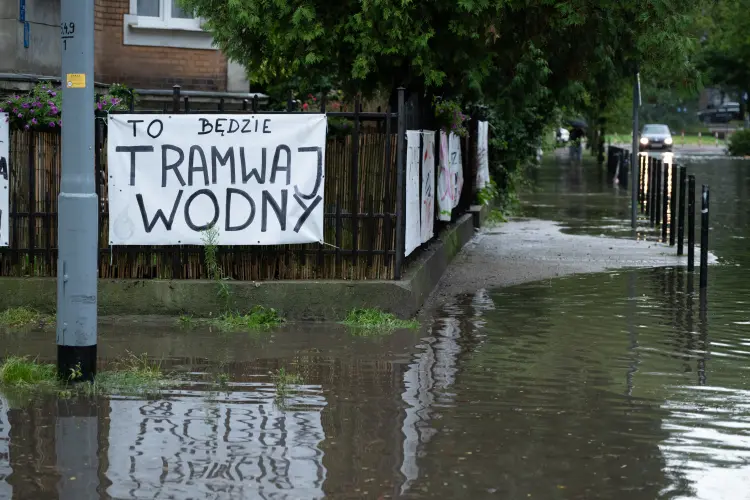 TO BĘDZIE
TRAMWAJ
WODNY